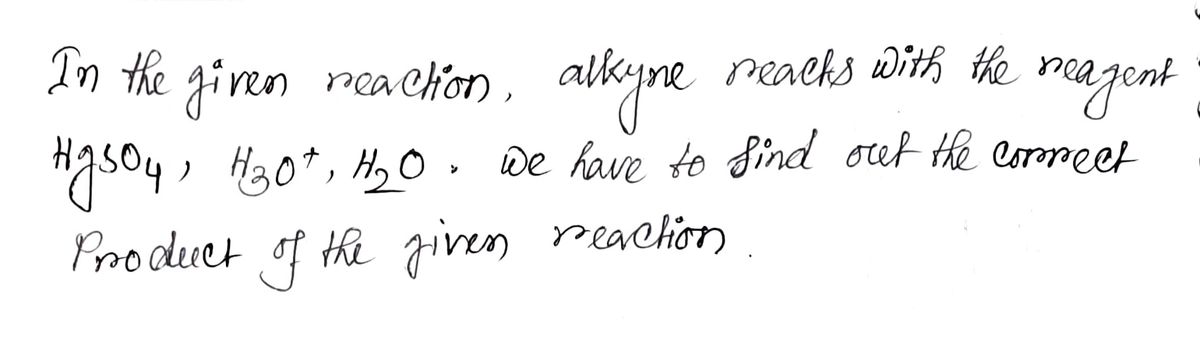 In the given reaction, alkyne reacts with the reagent
HgSO4, H3O+, H2O. We have to find out the correct
Product of the given reaction.